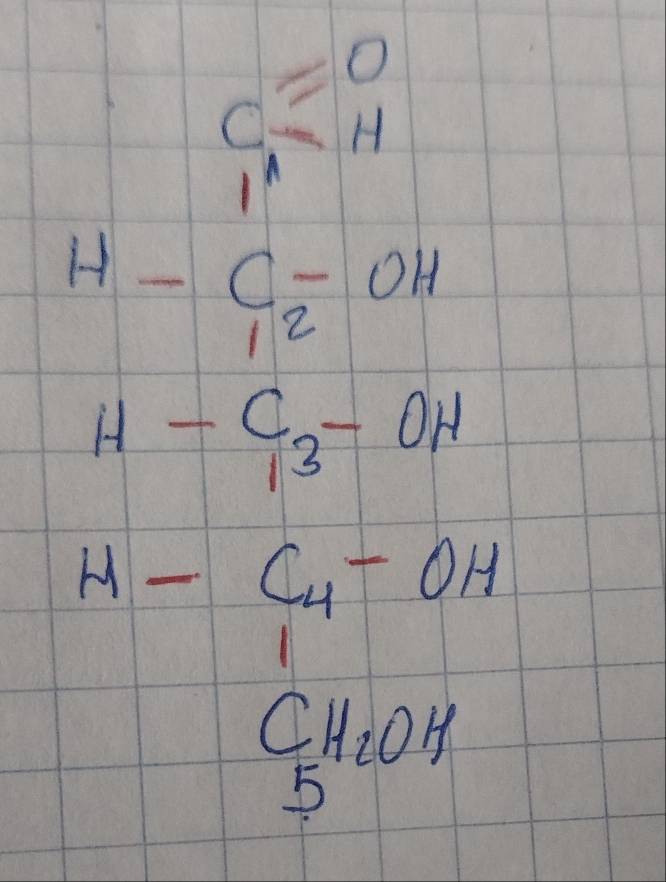 O
C1 H
H - C2 - OH
H - C3 - OH
H - C4 - OH
CH2OH
5